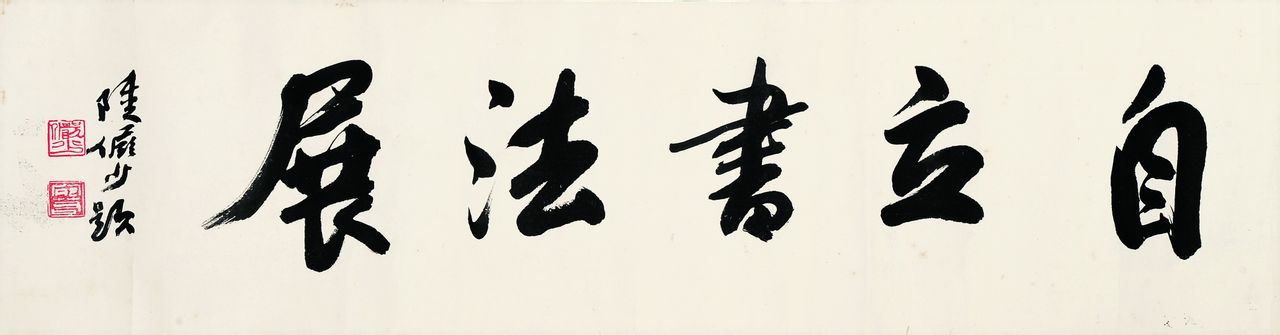 自立書法展
陸儼少題